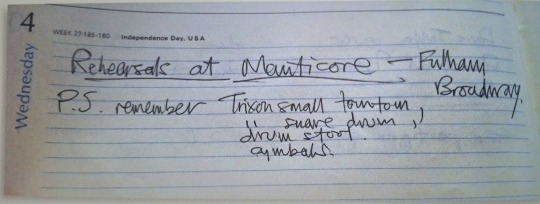 4
Wednesday
WEEK 27·185-180 Independence Day, USA
Rehearsals at Manticore — Fulham
Broadway.
P.S. remember Trixon small tomtom,
snare drum,
drum stool.
cymbals.